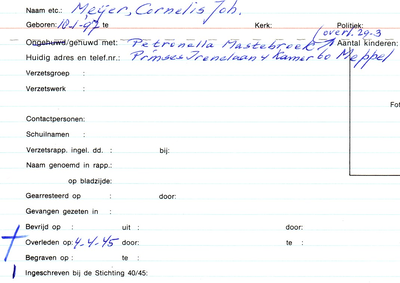 Naam etc.: Meijer, Cornelis Joh.
Geboren: 10-1-97 te Kerk: Politiek:
(overl. 29-3
Ongehuwd/gehuwd met: Petronella Mastebroek Aantal kinderen:
Huidig adres en telef.nr.: Prinses Irenelaan 4 Kamer 60 Meppel
Verzetsgroep :
Verzetswerk :
Fot
Contactpersonen:
Schuilnamen :
Verzetsrapp. ingel. dd. : bij:
Naam genoemd in rapp.:
op bladzijde:
Gearresteerd op : door:
Gevangen gezeten in :
Bevrijd op : uit : door:
Overleden op: 4-4-45 door: te :
Begraven op : te :
Ingeschreven bij de Stichting 40/45: